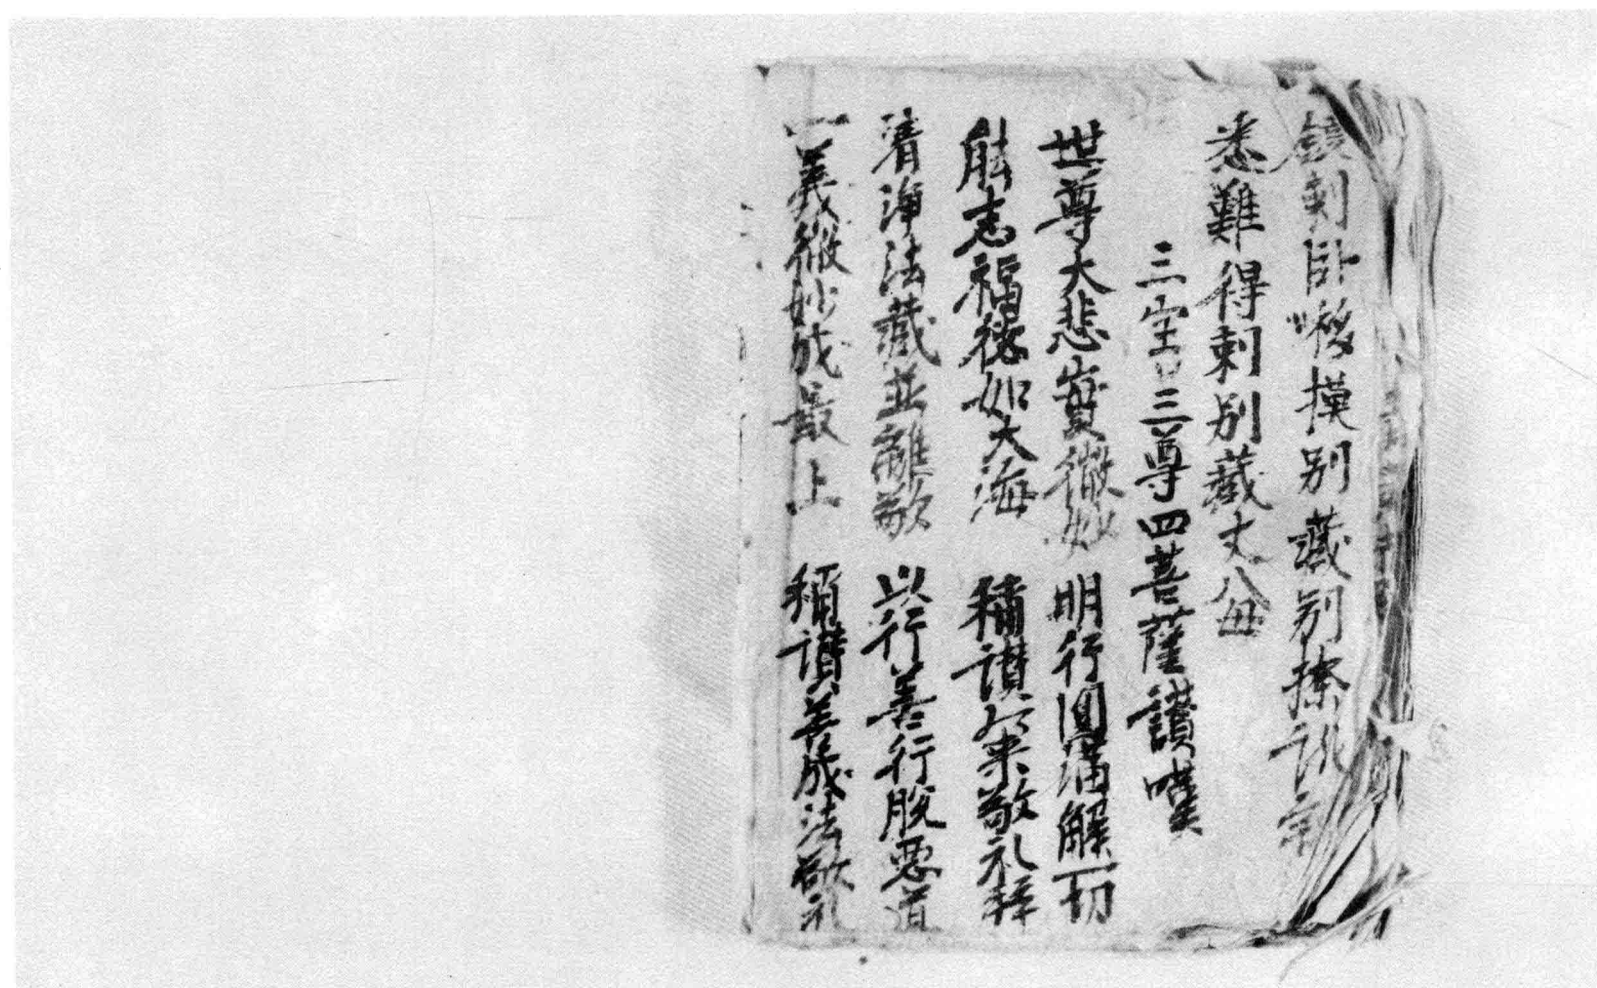 鏡刺卧𠺕摸别藏别捺訛
悉難得刺别藏丈八毋
三宝三尊四菩薩讃嘆
世尊大悲實微妙 明行圓満解一切
能志福德如大海 稱讃如来敬礼拜
清浄法藏並離欲 以行善行脫惡道
一義微妙成最上 稱讃善成法敬礼